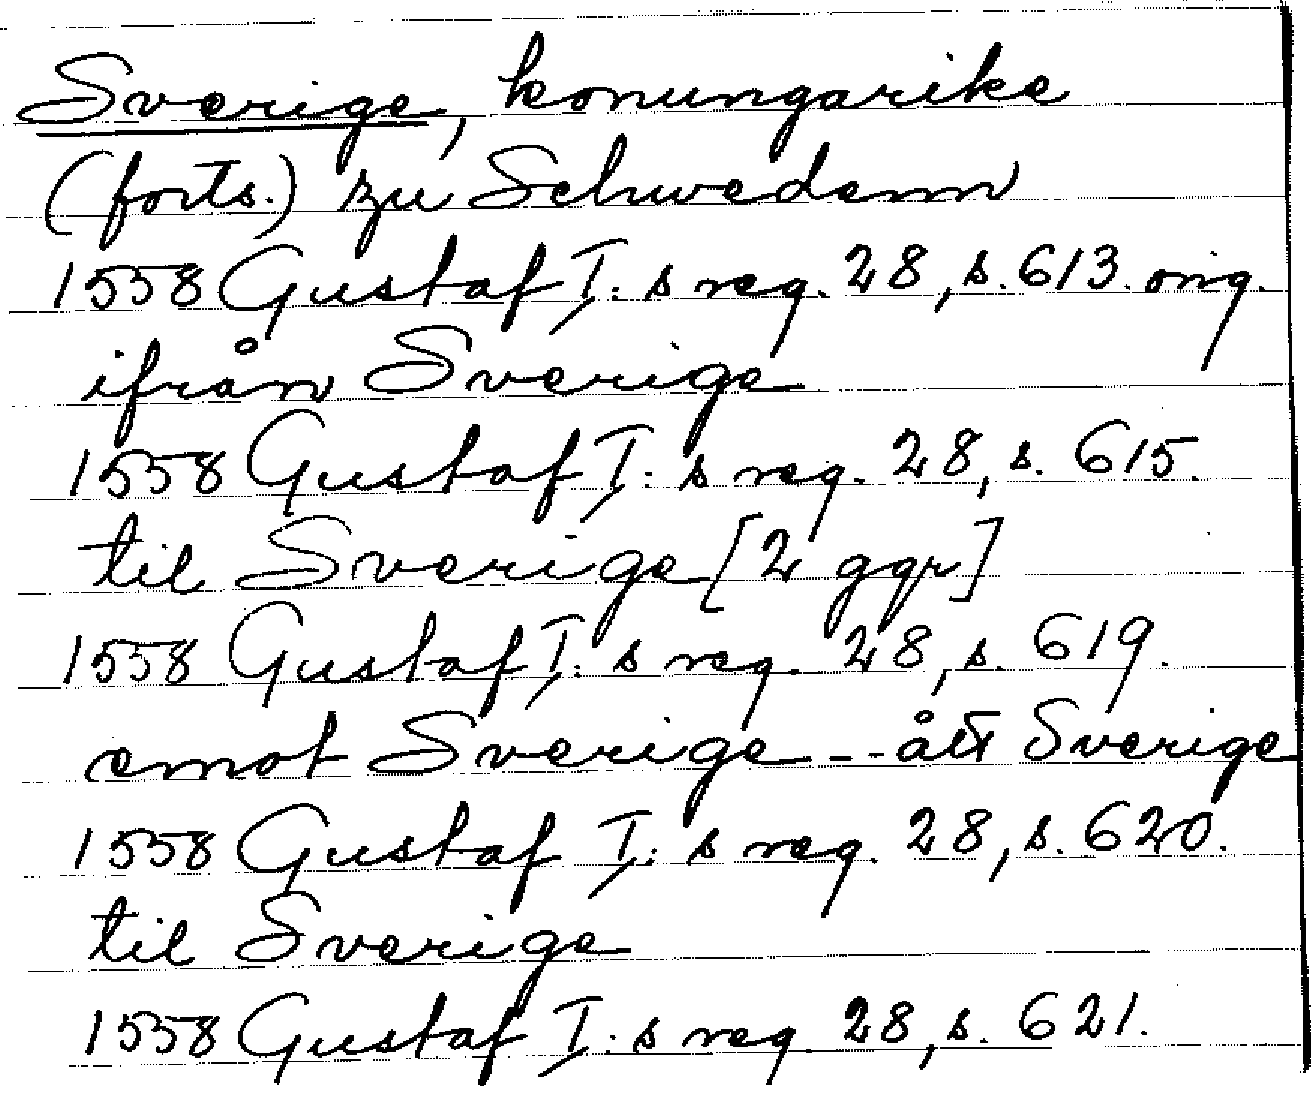 Sverige, konungarike
(forts.) zu Schwedenn
1558 Gustaf I:s reg. 28, s. 613. orig.
ifrån Sverige
1558 Gustaf I:s reg. 28, s. 615.
til Sverige [2 ggr]
1558 Gustaf I:s reg. 28, s. 619.
emot Sverige -- átt Sverige
1558 Gustaf I:s reg. 28, s. 620.
til Sverige
1558 Gustaf I:s reg 28, s. 621.